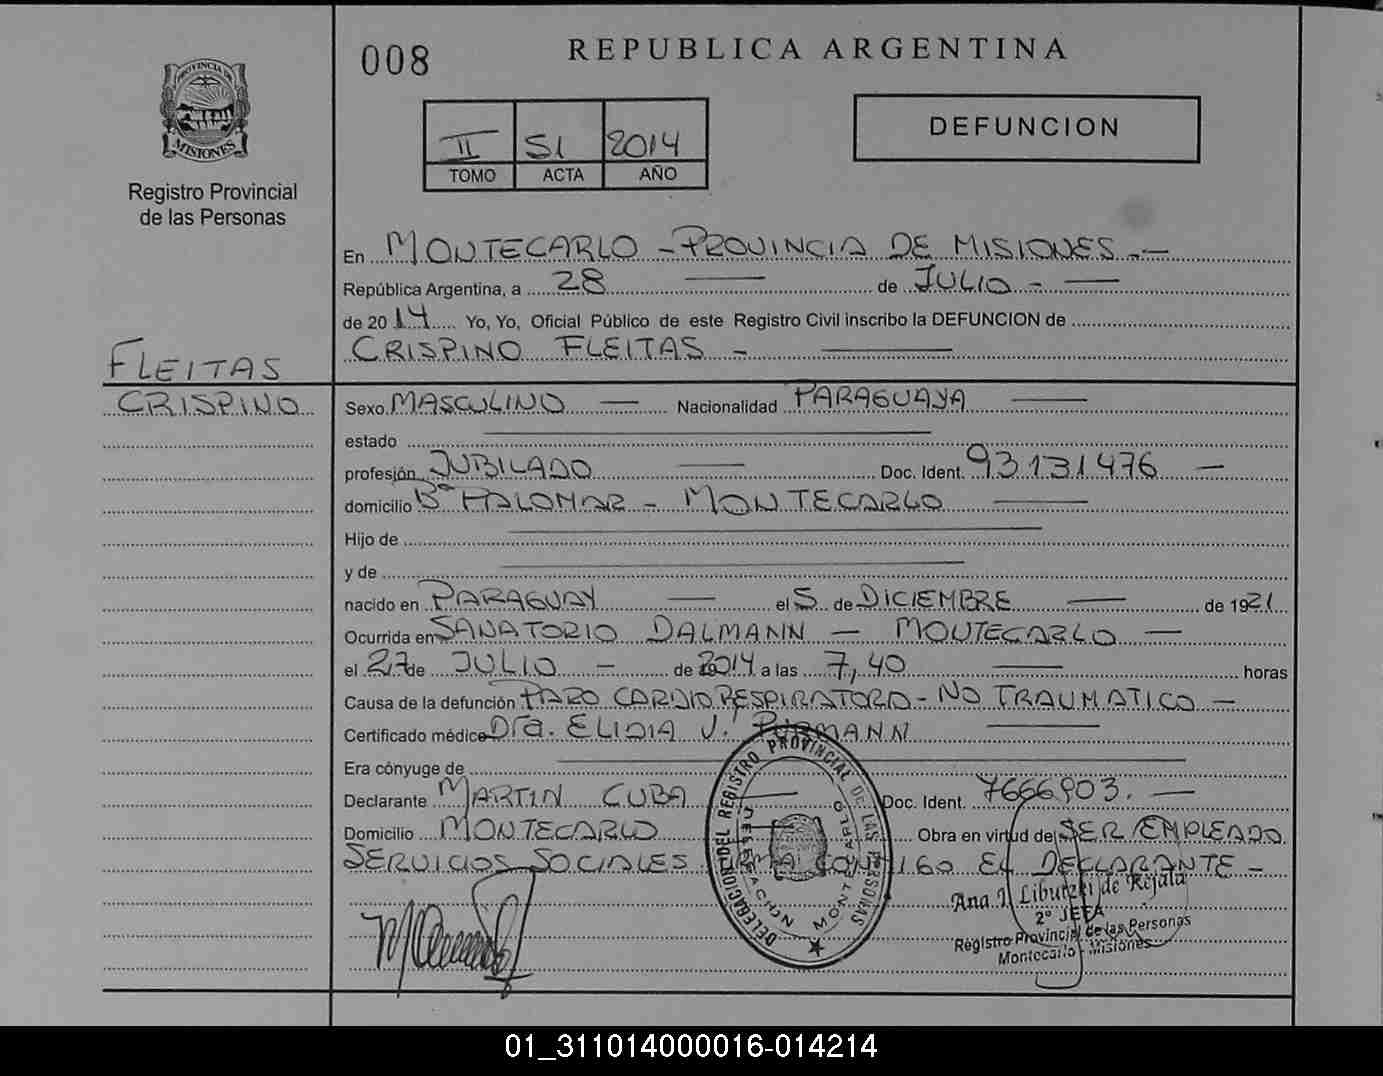 008
REPUBLICA ARGENTINA
PROVINCIA DE
MISIONES
Registro Provincial
de las Personas
II 51 2014
TOMO ACTA AÑO
DEFUNCION
En MONTECARLO - PROVINCIA DE MISIONES.-
República Argentina, a 28 de JULIO -
de 2014 Yo, Yo, Oficial Público de este Registro Civil inscribo la DEFUNCION de
CRISPINO FLEITAS -
FLEITAS
CRISPINO
Sexo MASCULINO Nacionalidad PARAGUAYA
estado
profesión JUBILADO Doc. Ident. 93131476 -
domicilio Bº PALOMAR - MONTECARLO
Hijo de
y de
nacido en PARAGUAY el 5 de DICIEMBRE de 1921
Ocurrida en SANATORIO DALMANN - MONTECARLO -
el 27 de JULIO - de 2014 a las 7,40 horas
Causa de la defunción PARO CARDIO RESPIRATORO - NO TRAUMATICO -
Certificado médico Dra. ELIDIA J. PURMANN
Era cónyuge de
Declarante MARTIN CUBA Doc. Ident. 7666903. -
Domicilio MONTECARLO Obra en virtud de SER EMPLEADO
SERVICIOS SOCIALES FIRMA CONMIGO EL DECLARANTE -
DELEGACION DEL REGISTRO PROVINCIAL DE LAS PERSONAS
DELEGACION MONTECARLO
Ana I. Libutzki de Rejala
2º JEFA
Registro Provincial de las Personas
Montecarlo - Misiones
01_311014000016-014214